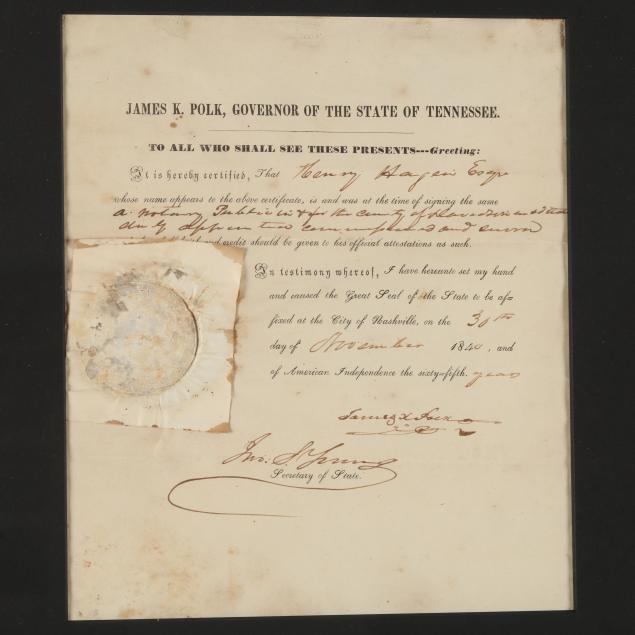 JAMES K. POLK, GOVERNOR OF THE STATE OF TENNESSEE.
TO ALL WHO SHALL SEE THESE PRESENTS---Greeting:
It is hereby certified, That Henry Hagen Esqr
whose name appears to the above certificate, is and was at the time of signing the same
a Notary Public in & for the county of Davidson and State
duly appointed commissioned and sworn
and credit should be given to his official attestations as such.
In testimony whereof, I have hereunto set my hand
and caused the Great Seal of the State to be af=
fixed at the City of Nashville, on the 30th
day of November 1840, and
of American Independence the sixty=fifth. year
James K Polk
Jno. S. Young
Secretary of State.